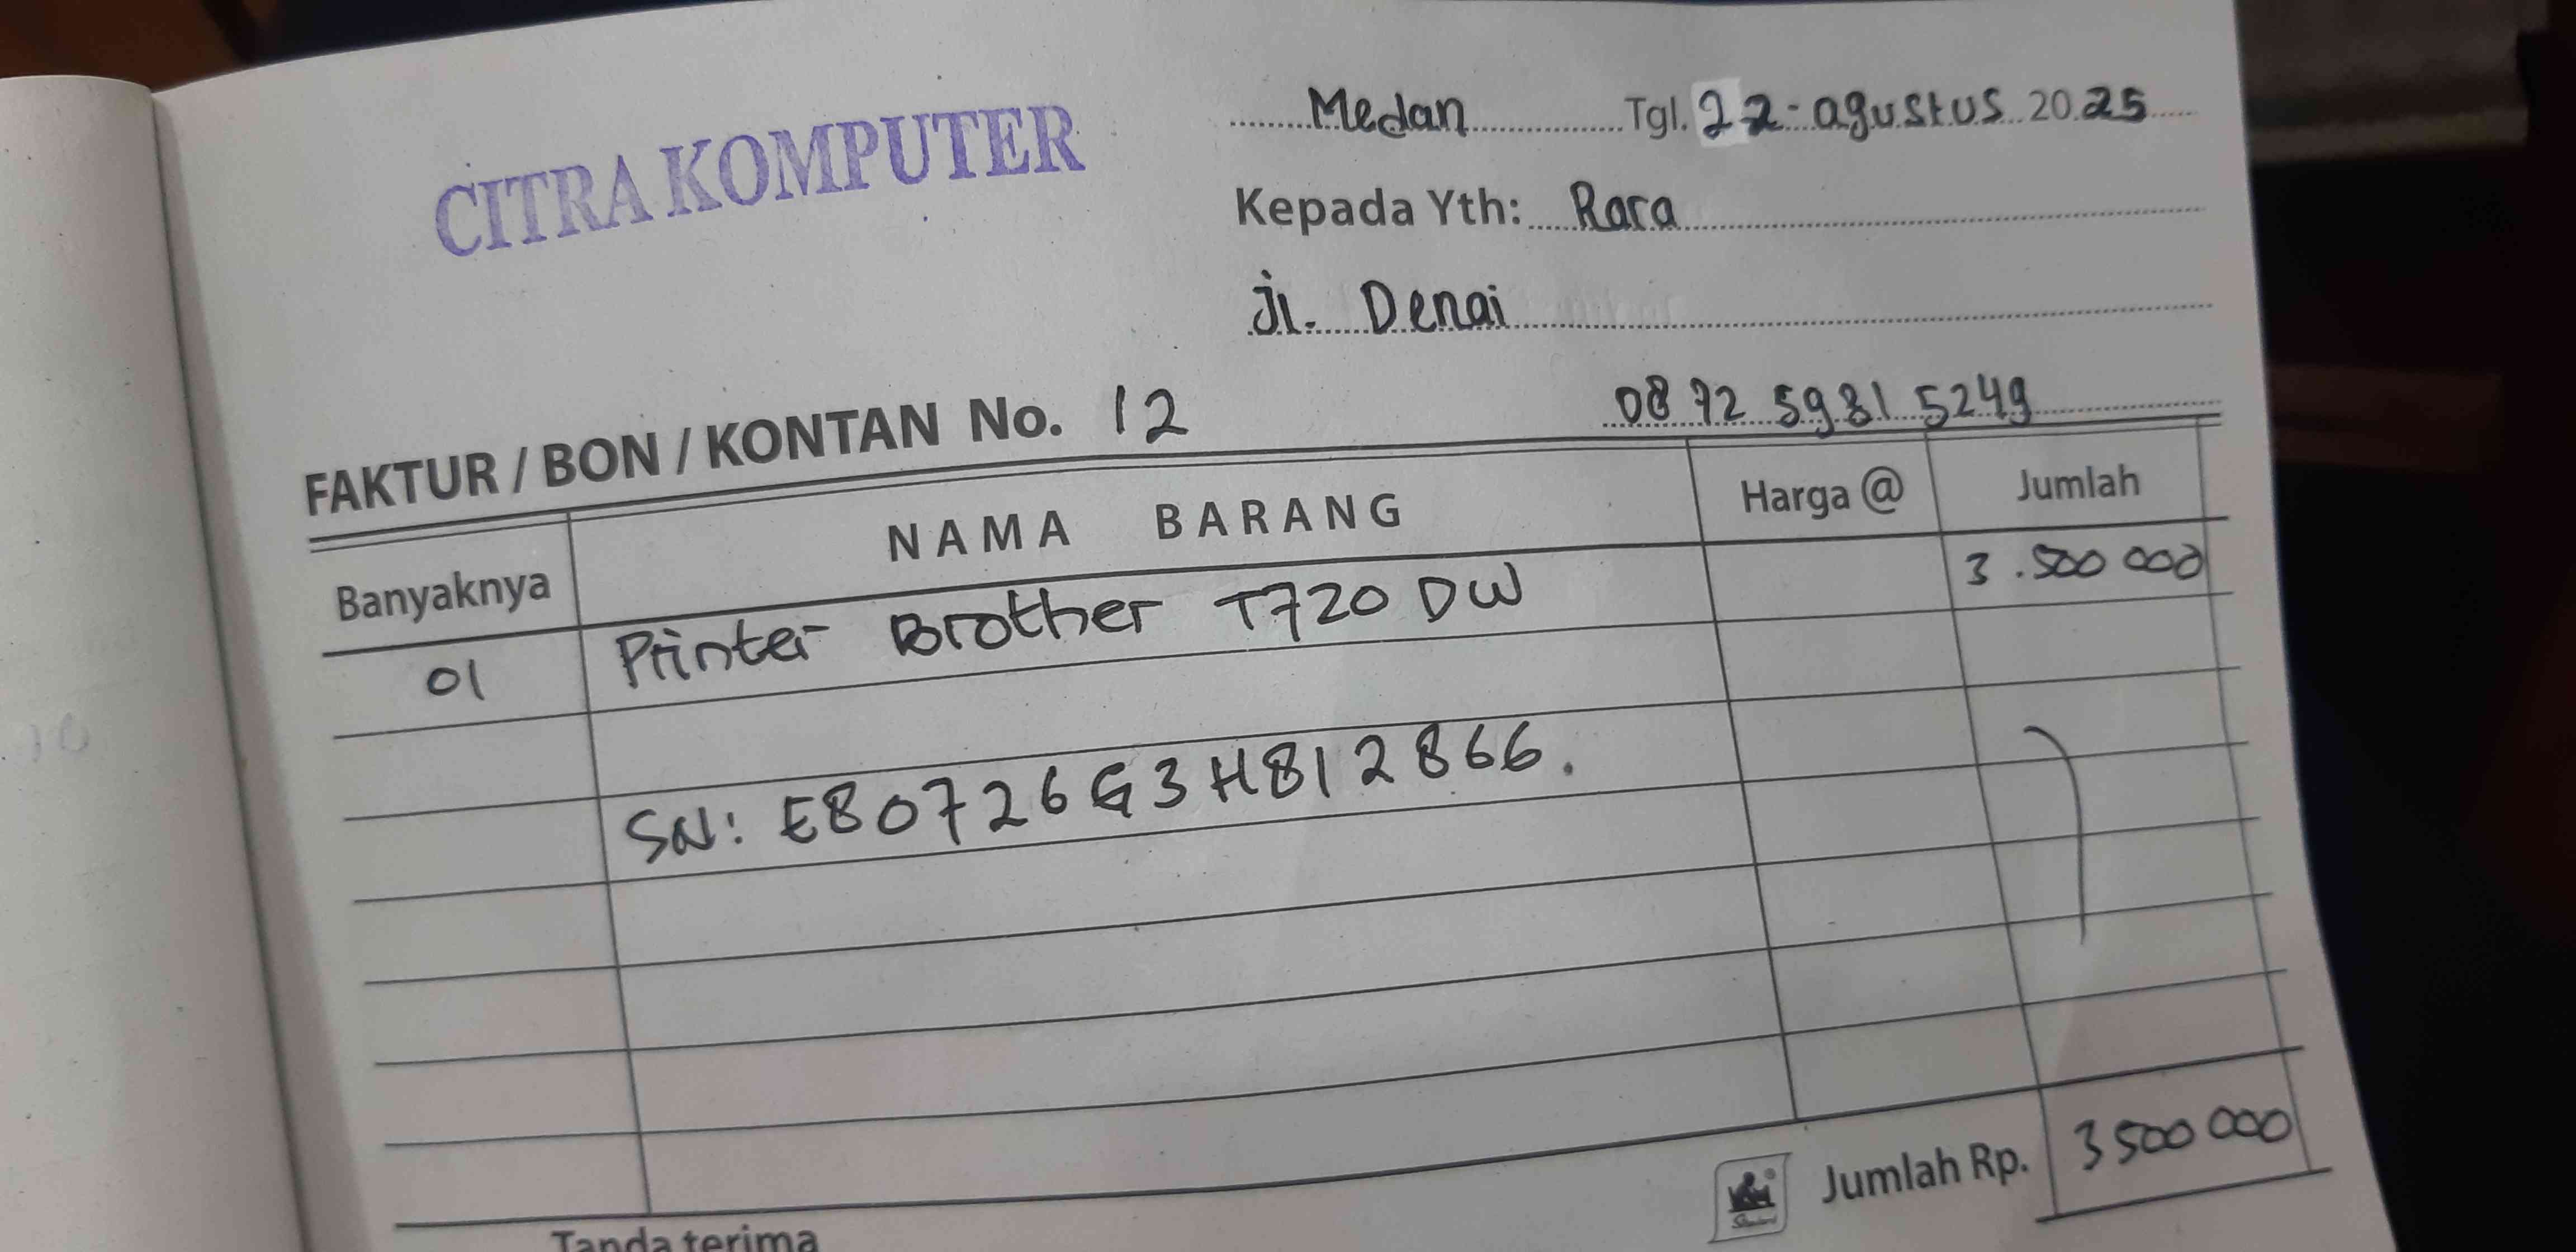 CITRA KOMPUTER
Medan Tgl. 22-agustus 2025
Kepada Yth: Rara
Jl. Denai
0872 5981 5249
FAKTUR / BON / KONTAN No. 12
Banyaknya NAMA BARANG Harga @ Jumlah
01 Printer Brother T720 DW 3.500 000
SN: E80726G3H812866.
Jumlah Rp. 3 500 000
Tanda terima